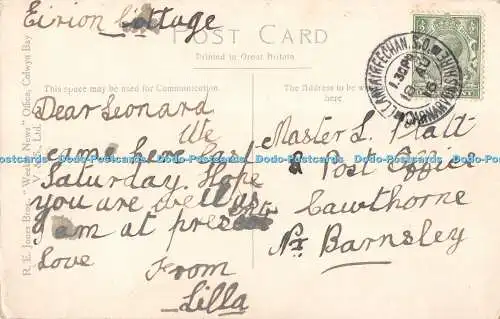 Eirion Cottage
POST CARD
Printed in Great Britain
This space may be used for Communication.
THE ADDRESS TO BE WRITTEN here
R. E. Jones Bros., "Weekly News" Office, Colwyn Bay
V. & S., Ltd.
LLANFAIRFECHAN. S.O.
CARNARVONSHIRE
1.30PM
Dear Leonard
We
came here last
Saturday. Hope
you are well as
I am at present
Love
From
Lilla
Master L. Platt
Post Office
Cawthorne
Nr Barnsley
Postcards Dodo-Postcards Dodo-Postcards Dodo-Postcards Dodo-Postcards Dodo-Postcards